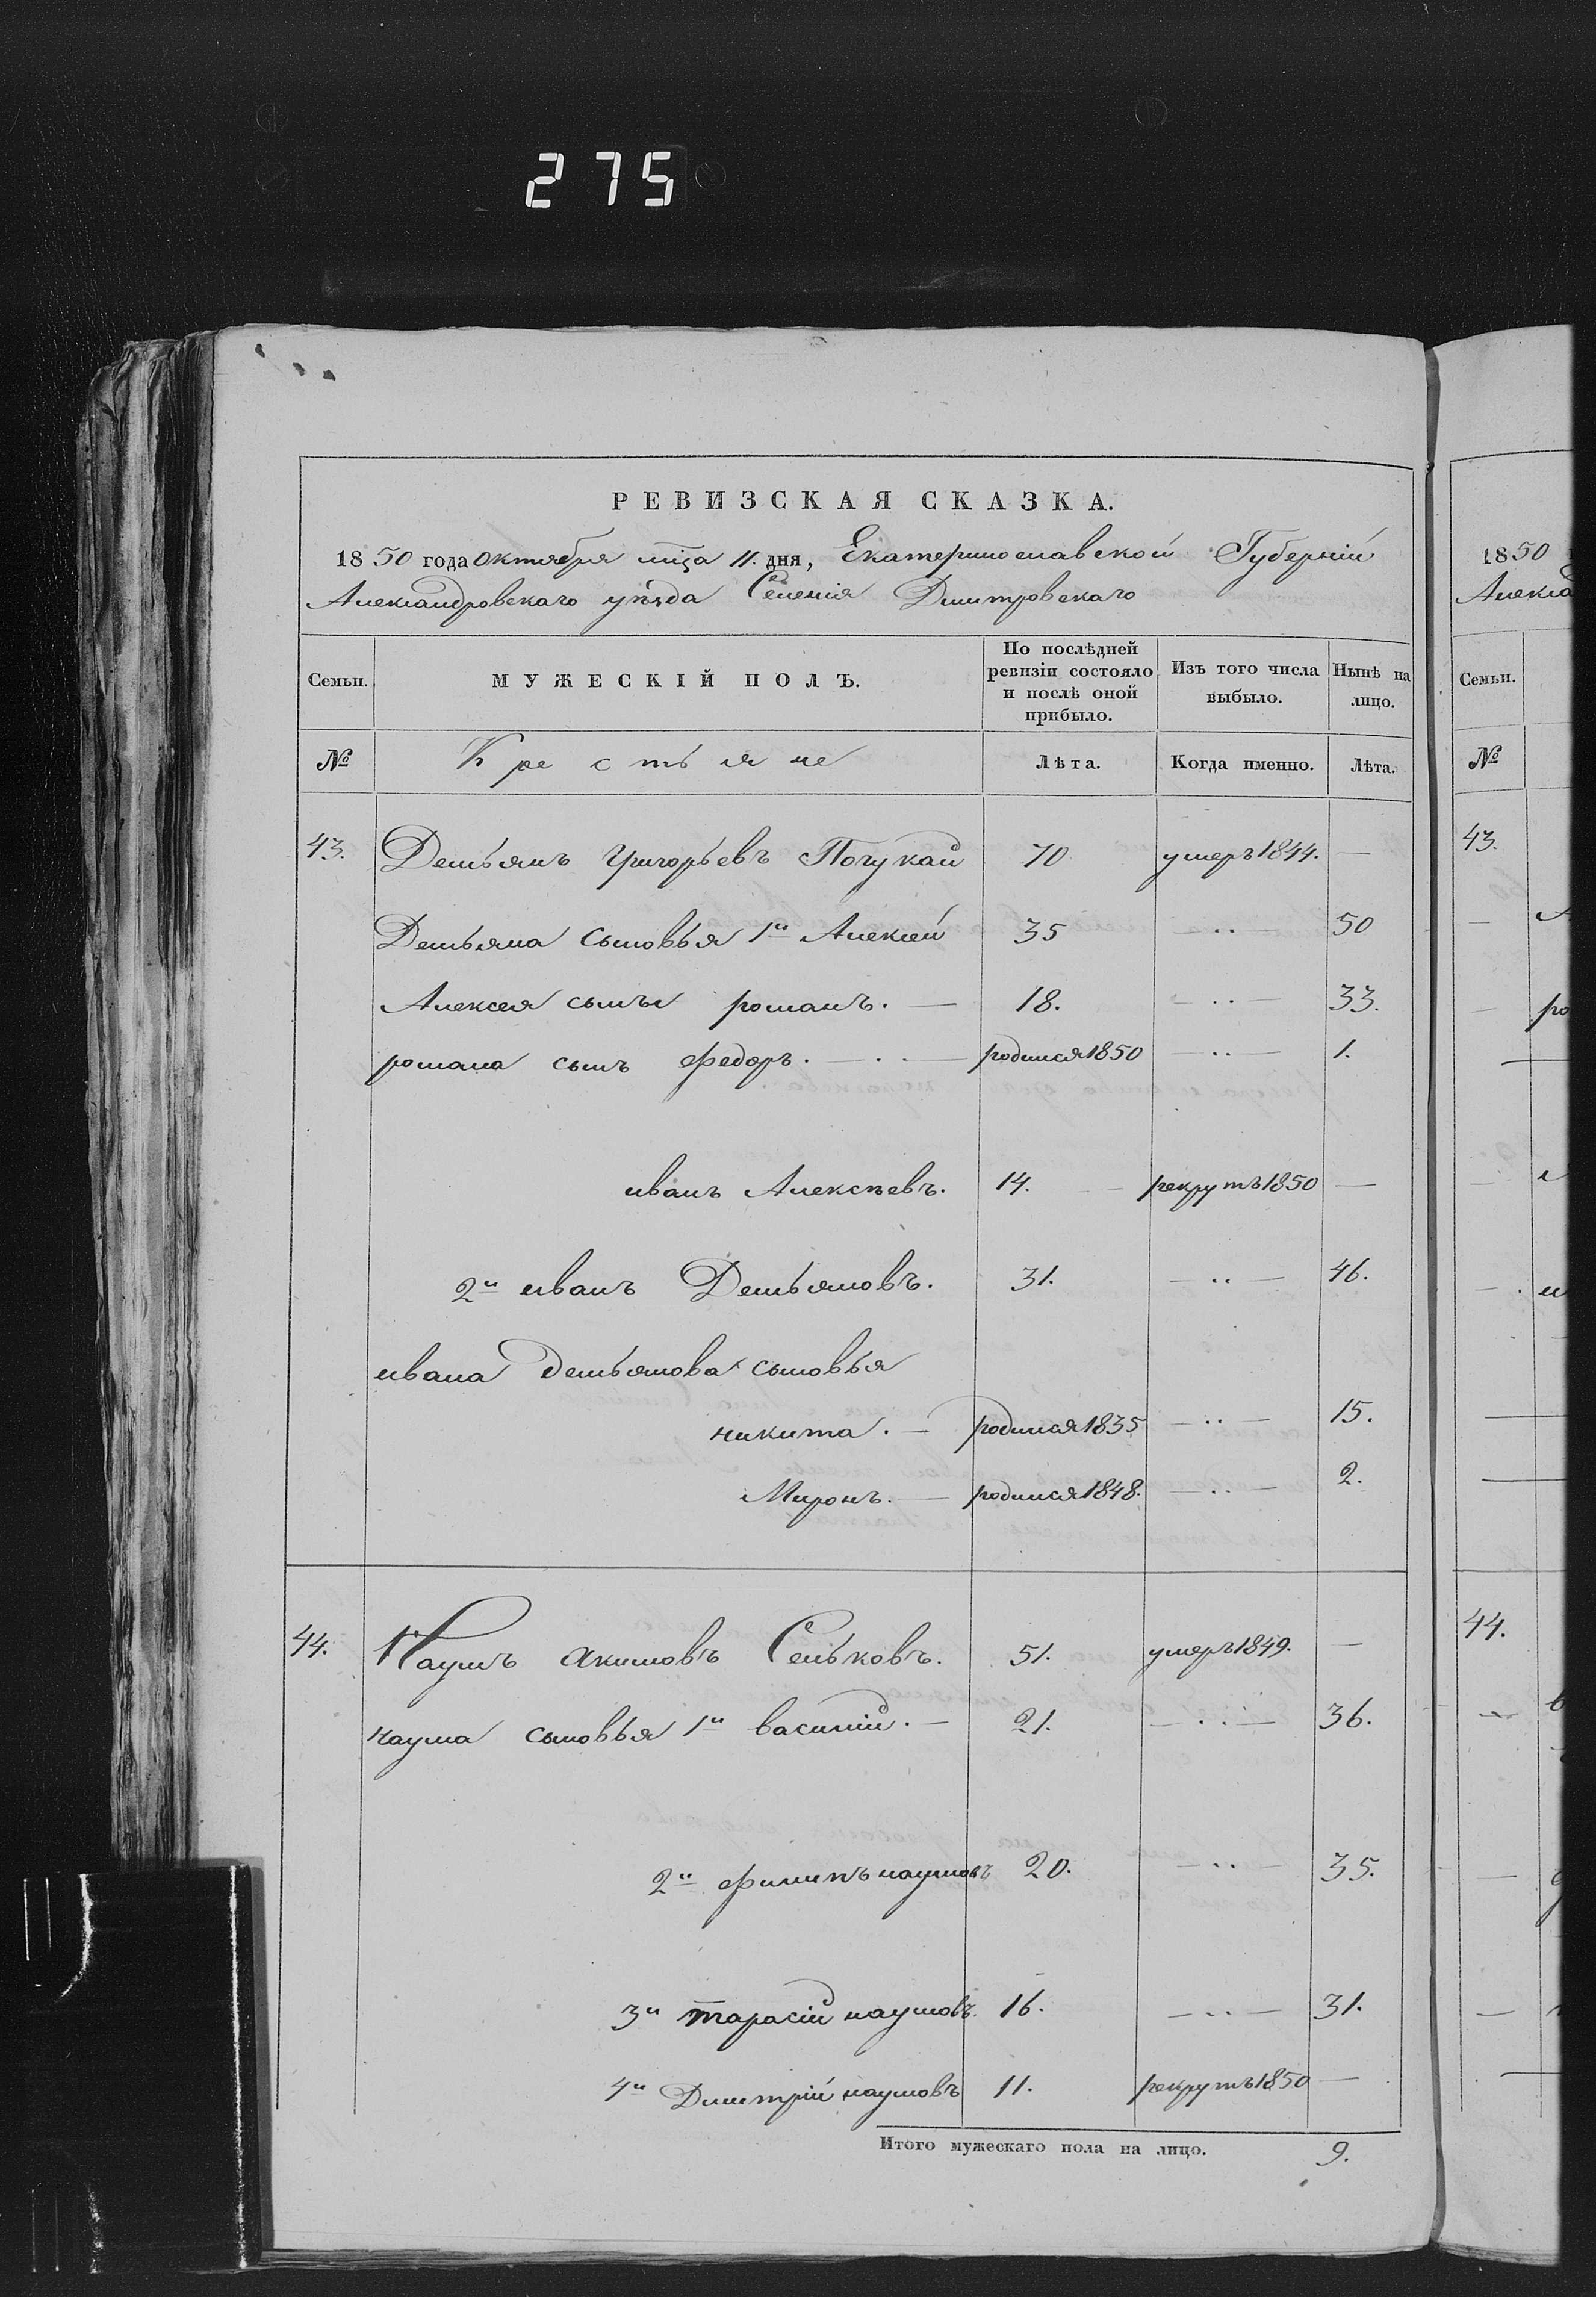 275
РЕВИЗСКАЯ СКАЗКА.
1850 года октября мца 11. дня, Екатеринославской Губерніи
Александровскаго уѣзда Селенія Дмитровскаго
Семьи. МУЖЕСКІЙ ПОЛЪ. По послѣдней ревизіи состояло и послѣ оной прибыло. Изъ того числа выбыло. Нынѣ на лицо.
№ Крестьяне Лѣта. Когда именно. Лѣта.
43. Демьянъ Григорьевъ Погукай 70 умеръ 1844. —
Демьяна сыновья 1й Алексей 35 — .. — 50
Алексея сынъ романъ. — 18. — .. — 33.
романа сынъ федоръ. — . — родился 1850 — .. — 1.
иванъ Алексѣевъ. 14. — рекрутъ 1850 —
2й иванъ Демьяновъ. 31. — .. — 46.
ивана демьянова сыновья
никита. — родился 1835 — .. — 15.
Миронъ. — родился 1848. — .. — 2.
44. Наумъ акимовъ Сеньковъ. 51. умеръ 1849. —
наума сыновья 1й василий. — 21. — .. — 36.
2й филипъ наумовъ 20. — .. — 35.
3й тарасій наумовъ 16. — .. — 31.
4й Дмитрій наумовъ 11. рекрутъ 1850 —
Итого мужескаго пола на лицо. 9.
1850
Алекса
Семьи.
№
43.
ро
44.